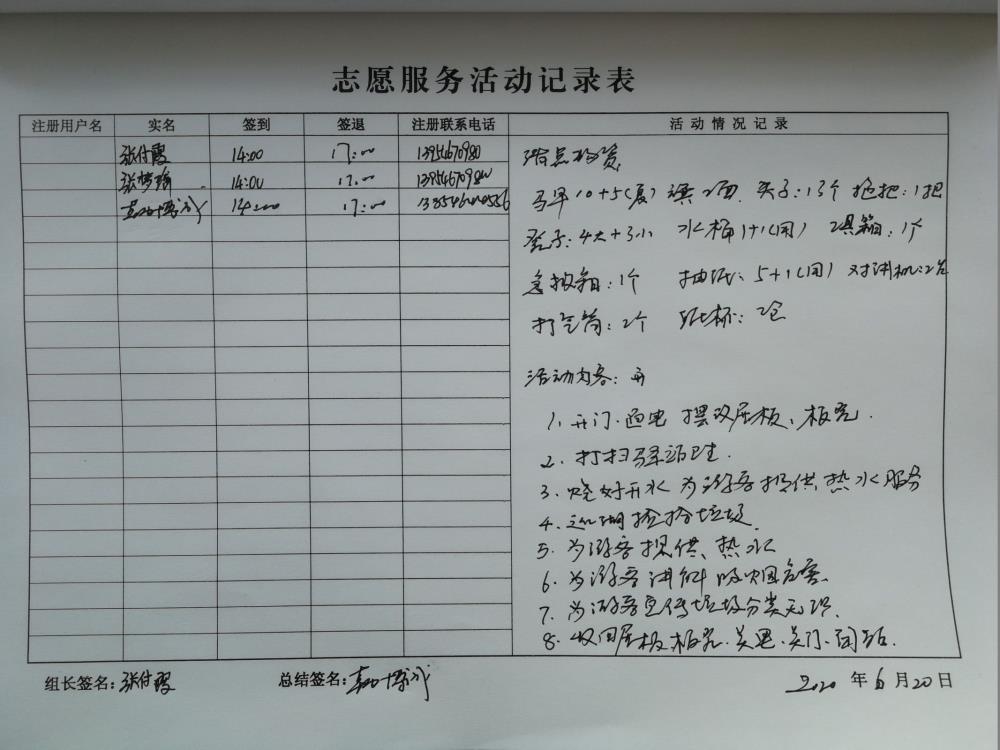 志愿服务活动记录表
注册用户名 实名 签到 签退 注册联系电话 活动情况记录
张付霞 14:00 17:00 13954670980
张梦瑜 14:00 17:00
14:00 17:00
站点物资
马甲10+5(夏) 旗2面 夹子:13个 拖把:1把
凳子:4大+3小 水桶1+1(用) 工具箱:1个
急救箱:1个 抽纸:5+1(用) 对讲机:2台
打气筒:2个 纸杯:2包
活动内容:
1、开门、通电 摆放展板、板凳.
2、打扫驿站卫生.
3、烧好开水 为游客提供热水服务
4、巡湖捡拾垃圾.
5、为游客提供热水
6、为游客讲解吸烟危害.
7、为游客宣传垃圾分类知识.
8、收回展板板凳、关电、关门、闭站.
组长签名:张付霞 总结签名: 2020年6月20日